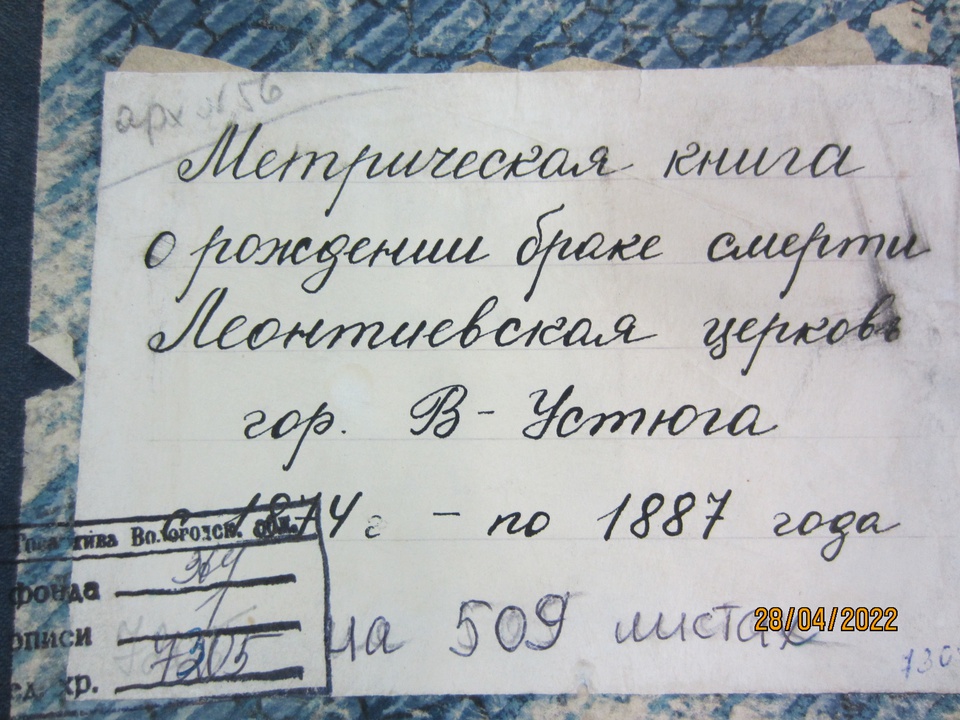 арх № 56
Метрическая книга
о рождении браке смерти
Леонтиевская церковь
гор. В-Устюга
с 1874 г - по 1887 года
на 509 листах
28/04/2022
Вологодск. обл.
фонда
описи 1
ед. хр. 7205